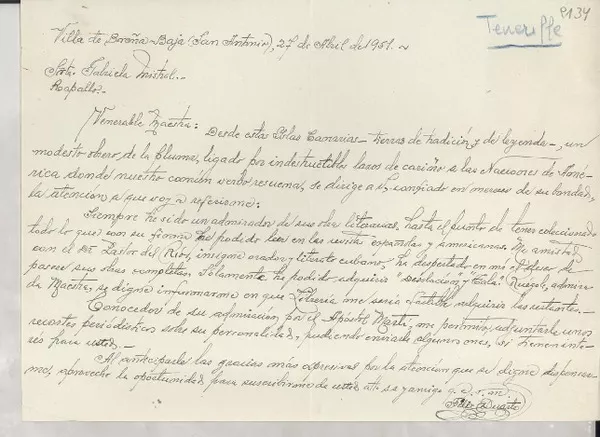 2134
Teneriffe
Villa de Breña-Baja (San Antonio), 27 de Abril de 1951.-
Srta. Gabriela Mistral.-
Rapallo.-
Venerable Maestra: Desde estas Islas Canarias - tierras de tradición y de leyenda -, un
modesto obrero de la pluma, ligado por indestructibles lazos de cariño a las Naciones de Amé-
rica donde nuestro común verbo resuena, se dirige a V., confiado en merced de su bondad,
la atención a que voy a referirme:
Siempre he sido un admirador de sus obras literarias, hasta el punto de tener coleccionado
todo lo que con su firma he podido leer en las revistas españolas y americanas. Mi amistad
con el Pastor del Río, insigne orador y literato cubano, ha despertado en mí el deseo de
poseer sus obras completas. Solamente he podido adquirir "Desolación" y "Tala". Ruego, admira-
da Maestra, se digne informarme en que Librería me sería factible adquirir las restantes.-
Conocedor de su admiración por el Apóstol Martí, me permito adjuntarle unos
recortes periodísticos sobre su personalidad, pudiendo enviarle algunos mas, si tienen inte-
rés para usted.-
Al anticiparle las gracias más expresivas por la atención que se digne dispensar-
me, aprovecho la oportunidad para suscribirme de usted atto. ss. y amigo q. s. p. m.
Félix Duarte